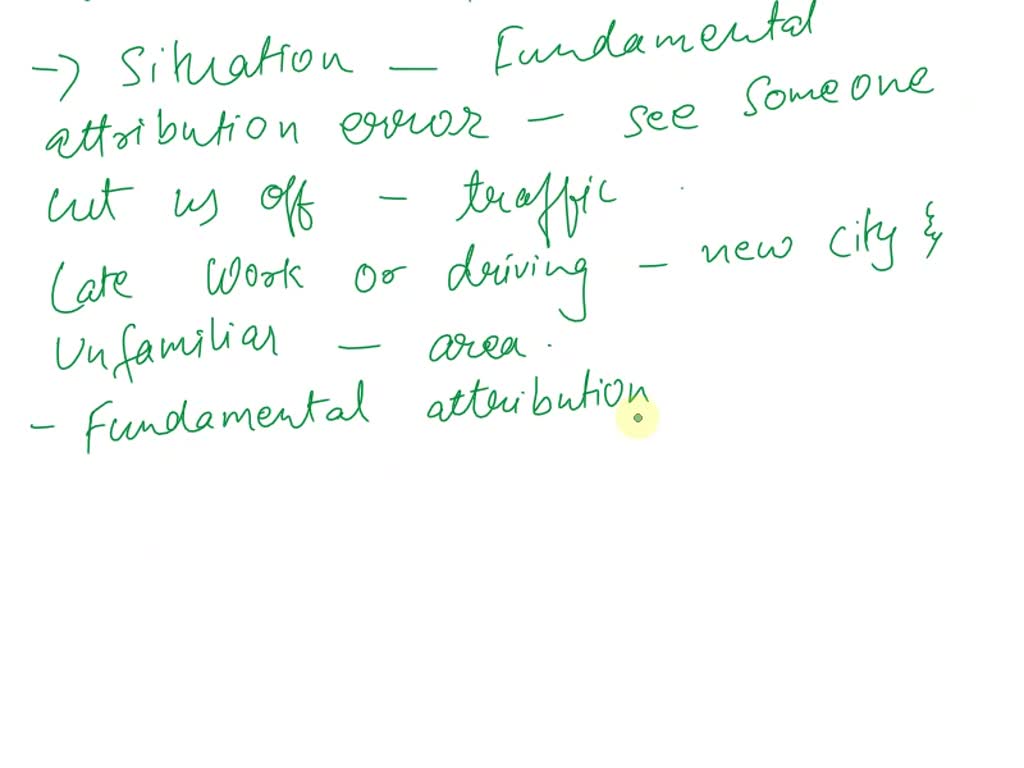 → Situation — Fundamental
attribution error – see someone
cut us off – traffic
Late work or driving – new city &
Unfamiliar — area.
- Fundamental attribution